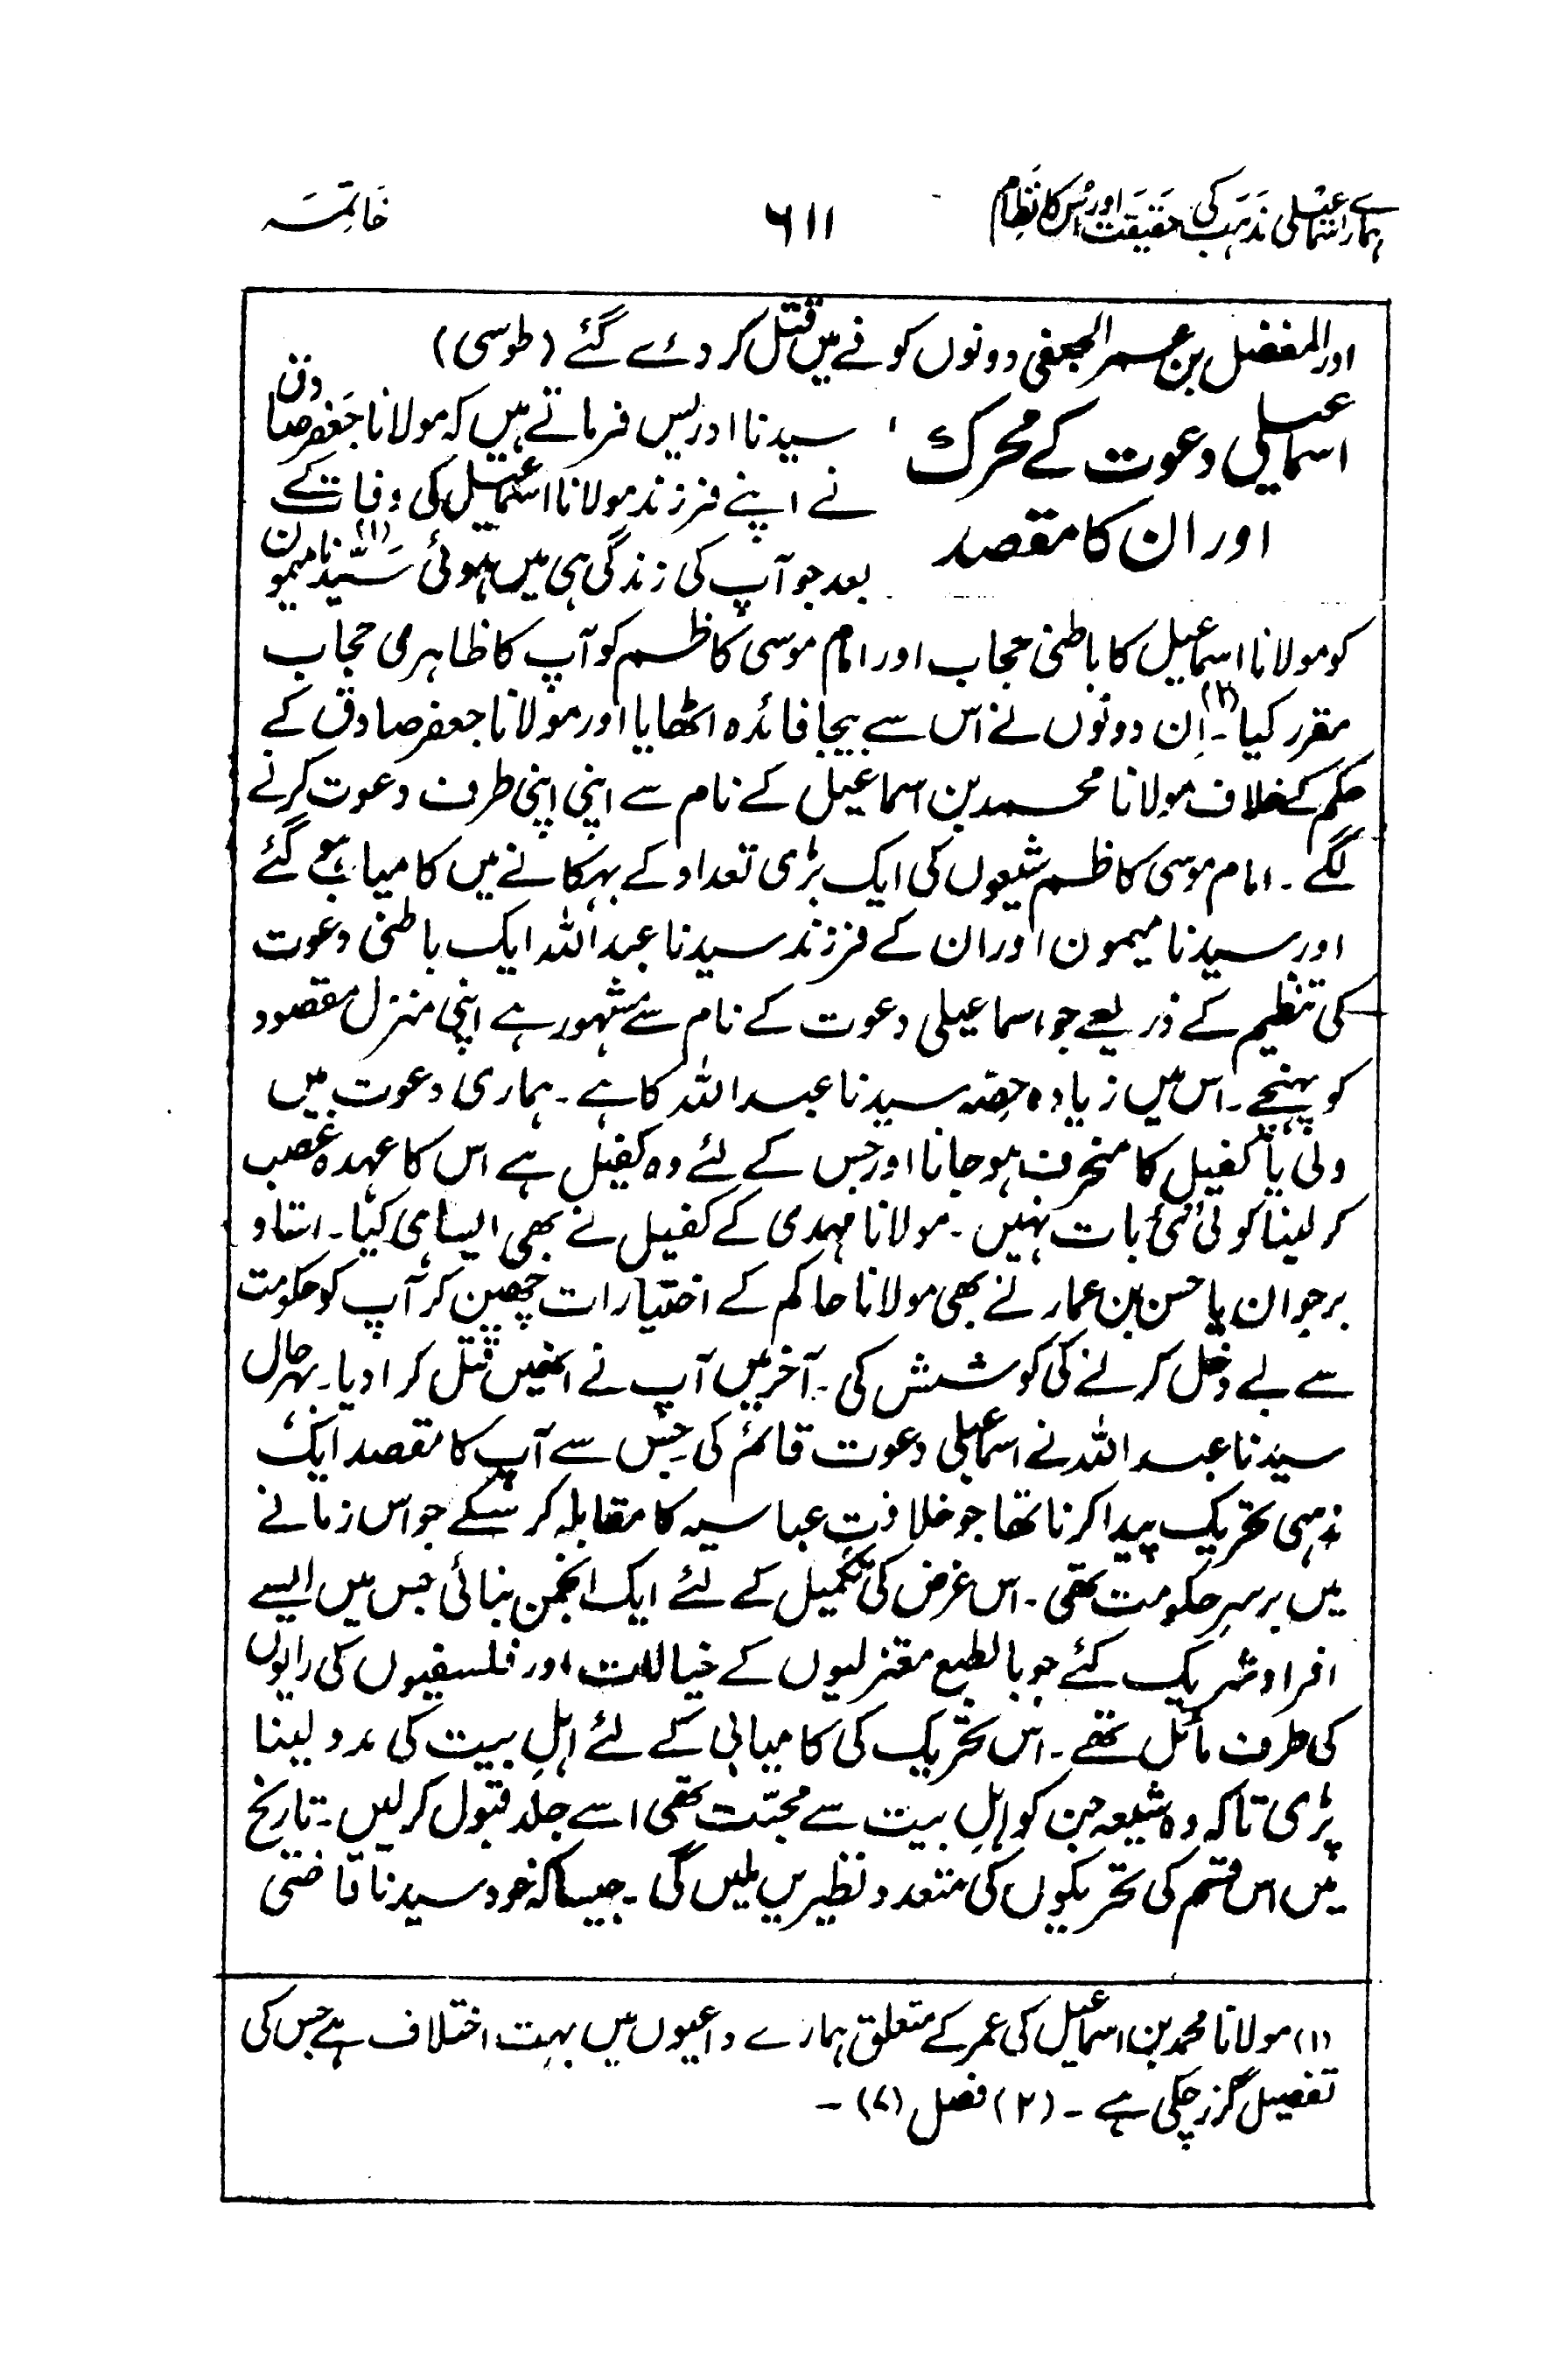 ہمارے اسماعیلی مذہب کی حقیقت اور اُس کا نظام
۶۱۱
خاتمہ
اور المفضل بن عمر الجعفی دونوں کوفے میں قتل کر دئے گئے (طوسی)
اسماعیلی دعوت کے محرک
اور ان کا مقصد
سیدنا ادریس فرماتے ہیں کہ مولانا جعفر صادق
نے اپنے فرزند مولانا اسماعیل کی وفات کے
بعد جو آپ کی زندگی ہی میں ہوئی سیّدنا میمون (۱)
کو مولانا اسماعیل کا باطنی حجاب اور امام موسی کاظم کو آپ کا ظاہری حجاب
مقرر کیا (۲)۔ اِن دونوں نے اس سے بیجا فائدہ اٹھایا اور مولانا جعفر صادق کے
حکم کے خلاف مولانا محمد بن اسماعیل کے نام سے اپنی اپنی طرف دعوت کرنے
لگے۔ امام موسی کاظم شیعوں کی ایک بڑی تعداد کے بہکانے میں کامیاب ہو گئے
اور سیدنا میمون اور ان کے فرزند سیدنا عبداللہ ایک باطنی دعوت
کی تنظیم کے ذریعے جو اسماعیلی دعوت کے نام سے مشہور ہے اپنی منزل مقصود
کو پہنچے۔ اس میں زیادہ حصّہ سیدنا عبداللہ کا ہے۔ ہماری دعوت میں
ولی یا کفیل کا منحرف ہو جانا اور جس کے لئے وہ کفیل ہے اس کا عہدہ غصب
کر لینا کوئی نئی بات نہیں۔ مولانا مہدی کے کفیل نے بھی ایسا ہی کیا۔ استاد
برجوان یا حسن بن عمار نے بھی مولانا حاکم کے اختیارات چھین کر آپ کو حکومت
سے بے دخل کرنے کی کوشش کی۔ آخر میں آپ نے انھیں قتل کرا دیا۔ بہر حال
سیدنا عبداللہ نے اسماعیلی دعوت قائم کی جس سے آپ کا مقصد ایک
مذہبی تحریک پیدا کرنا تھا جو خلافتِ عباسیہ کا مقابلہ کر سکے جو اس زمانے
میں برسرِ حکومت تھی۔ اس غرض کی تکمیل کے لئے ایک انجمن بنائی جس میں ایسے
افراد شریک کئے جو بالطبع معتزلیوں کے خیالات اور فلسفیوں کی رایوں
کی طرف مائل تھے۔ اس تحریک کی کامیابی کے لئے اہلِ بیت کی مدد لینا
پڑی تاکہ وہ شیعہ جن کو اہلِ بیت سے محبّت تھی اسے جلد قبول کر لیں۔ تاریخ
میں اس قسم کی تحریکوں کی متعدد نظیریں ملیں گی۔ جیسا کہ خود سیدنا قاضی
(۱) مولانا محمد بن اسماعیل کی عمر کے متعلق ہمارے داعیوں میں بہت اختلاف ہے جس کی
تفصیل گزر چکی ہے۔ (۲) فصل (۷)۔